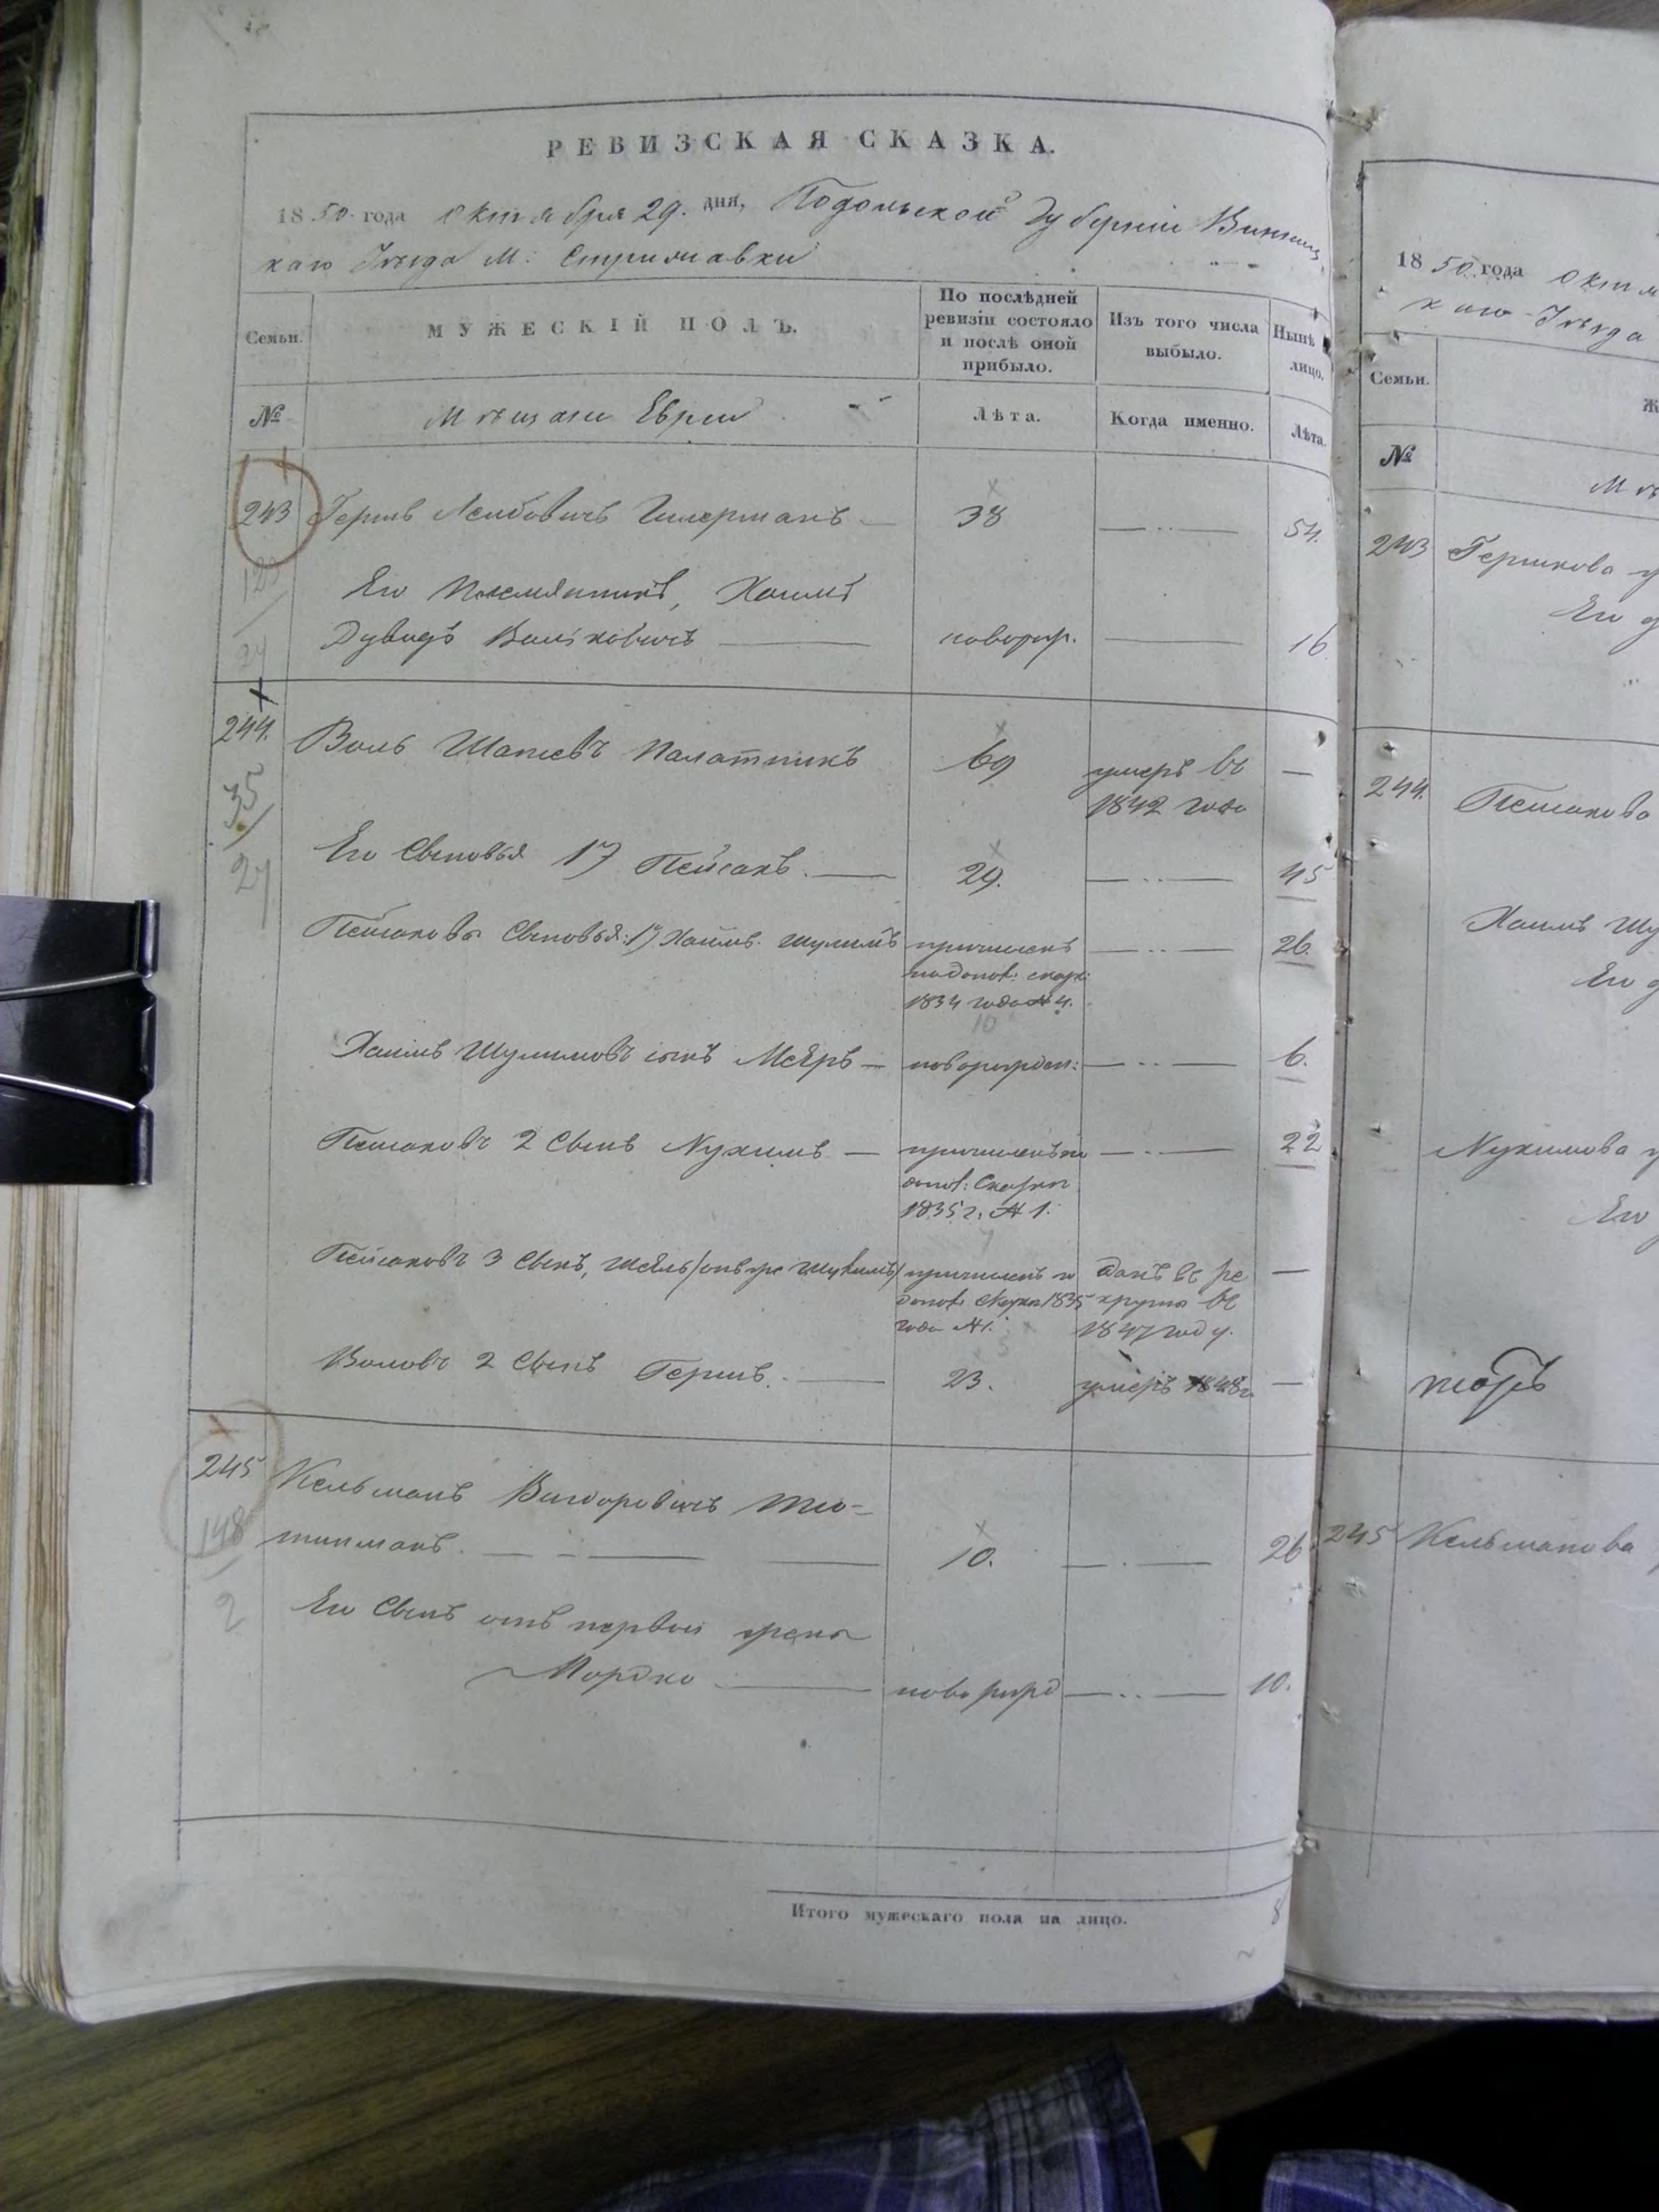 РЕВИЗСКАЯ СКАЗКА.
1850. года октября 29. дня, Подольской Губерніи Винниц
каго Уѣзда М: Стрижавки
Семьи.
МУЖЕСКІЙ ПОЛЪ.
По послѣдней ревизіи состояло и послѣ оной прибыло.
Изъ того числа выбыло.
Нынѣ лицо.
№
Мѣщане Евреи
Лѣта.
Когда именно.
Лѣта.
243 Гершъ Лейбовичъ Гилерманъ 38 54.
Его Племянникъ, Хаимъ
Дувидъ Волковичъ новорож. 16
27
244. Воль Шапсевъ Палатникъ 69 умеръ въ
1842 года
35
27
Его Сыновья 1) Пейсахъ. 29. 45
Пейсаховы Сыновья: 1) Хаимъ Шулимъ причисленъ 26.
по допол: сказк:
1834 года № 4.
10
Хаимъ Шулимовъ сынъ Меѣръ новорожден: 6.
Пейсаховъ 2 Сынъ Нухимъ причисленъ по 22
допол: Сказки
1835 г. № 1.
Пейсаховъ 3 Сынъ, причисленъ по данъ въ ре
допол. сказки 1835 круты въ
года № 1. 1847 году.
Волевъ 2 Сынъ Гершъ. 23. умеръ 1848 г
245 Кельманъ Вигдоровичъ
148
10. 26
2
Его Сынъ отъ первой жены
Мордко новорожд 10.
Итого мужескаго пола на лицо. 8
1850 года
каго Уѣзда
Семьи.
№
243 Гершкова
Его
244. Пейсахова
Хаимъ Шу
Его
Нухимова
Его
245 Кельманова